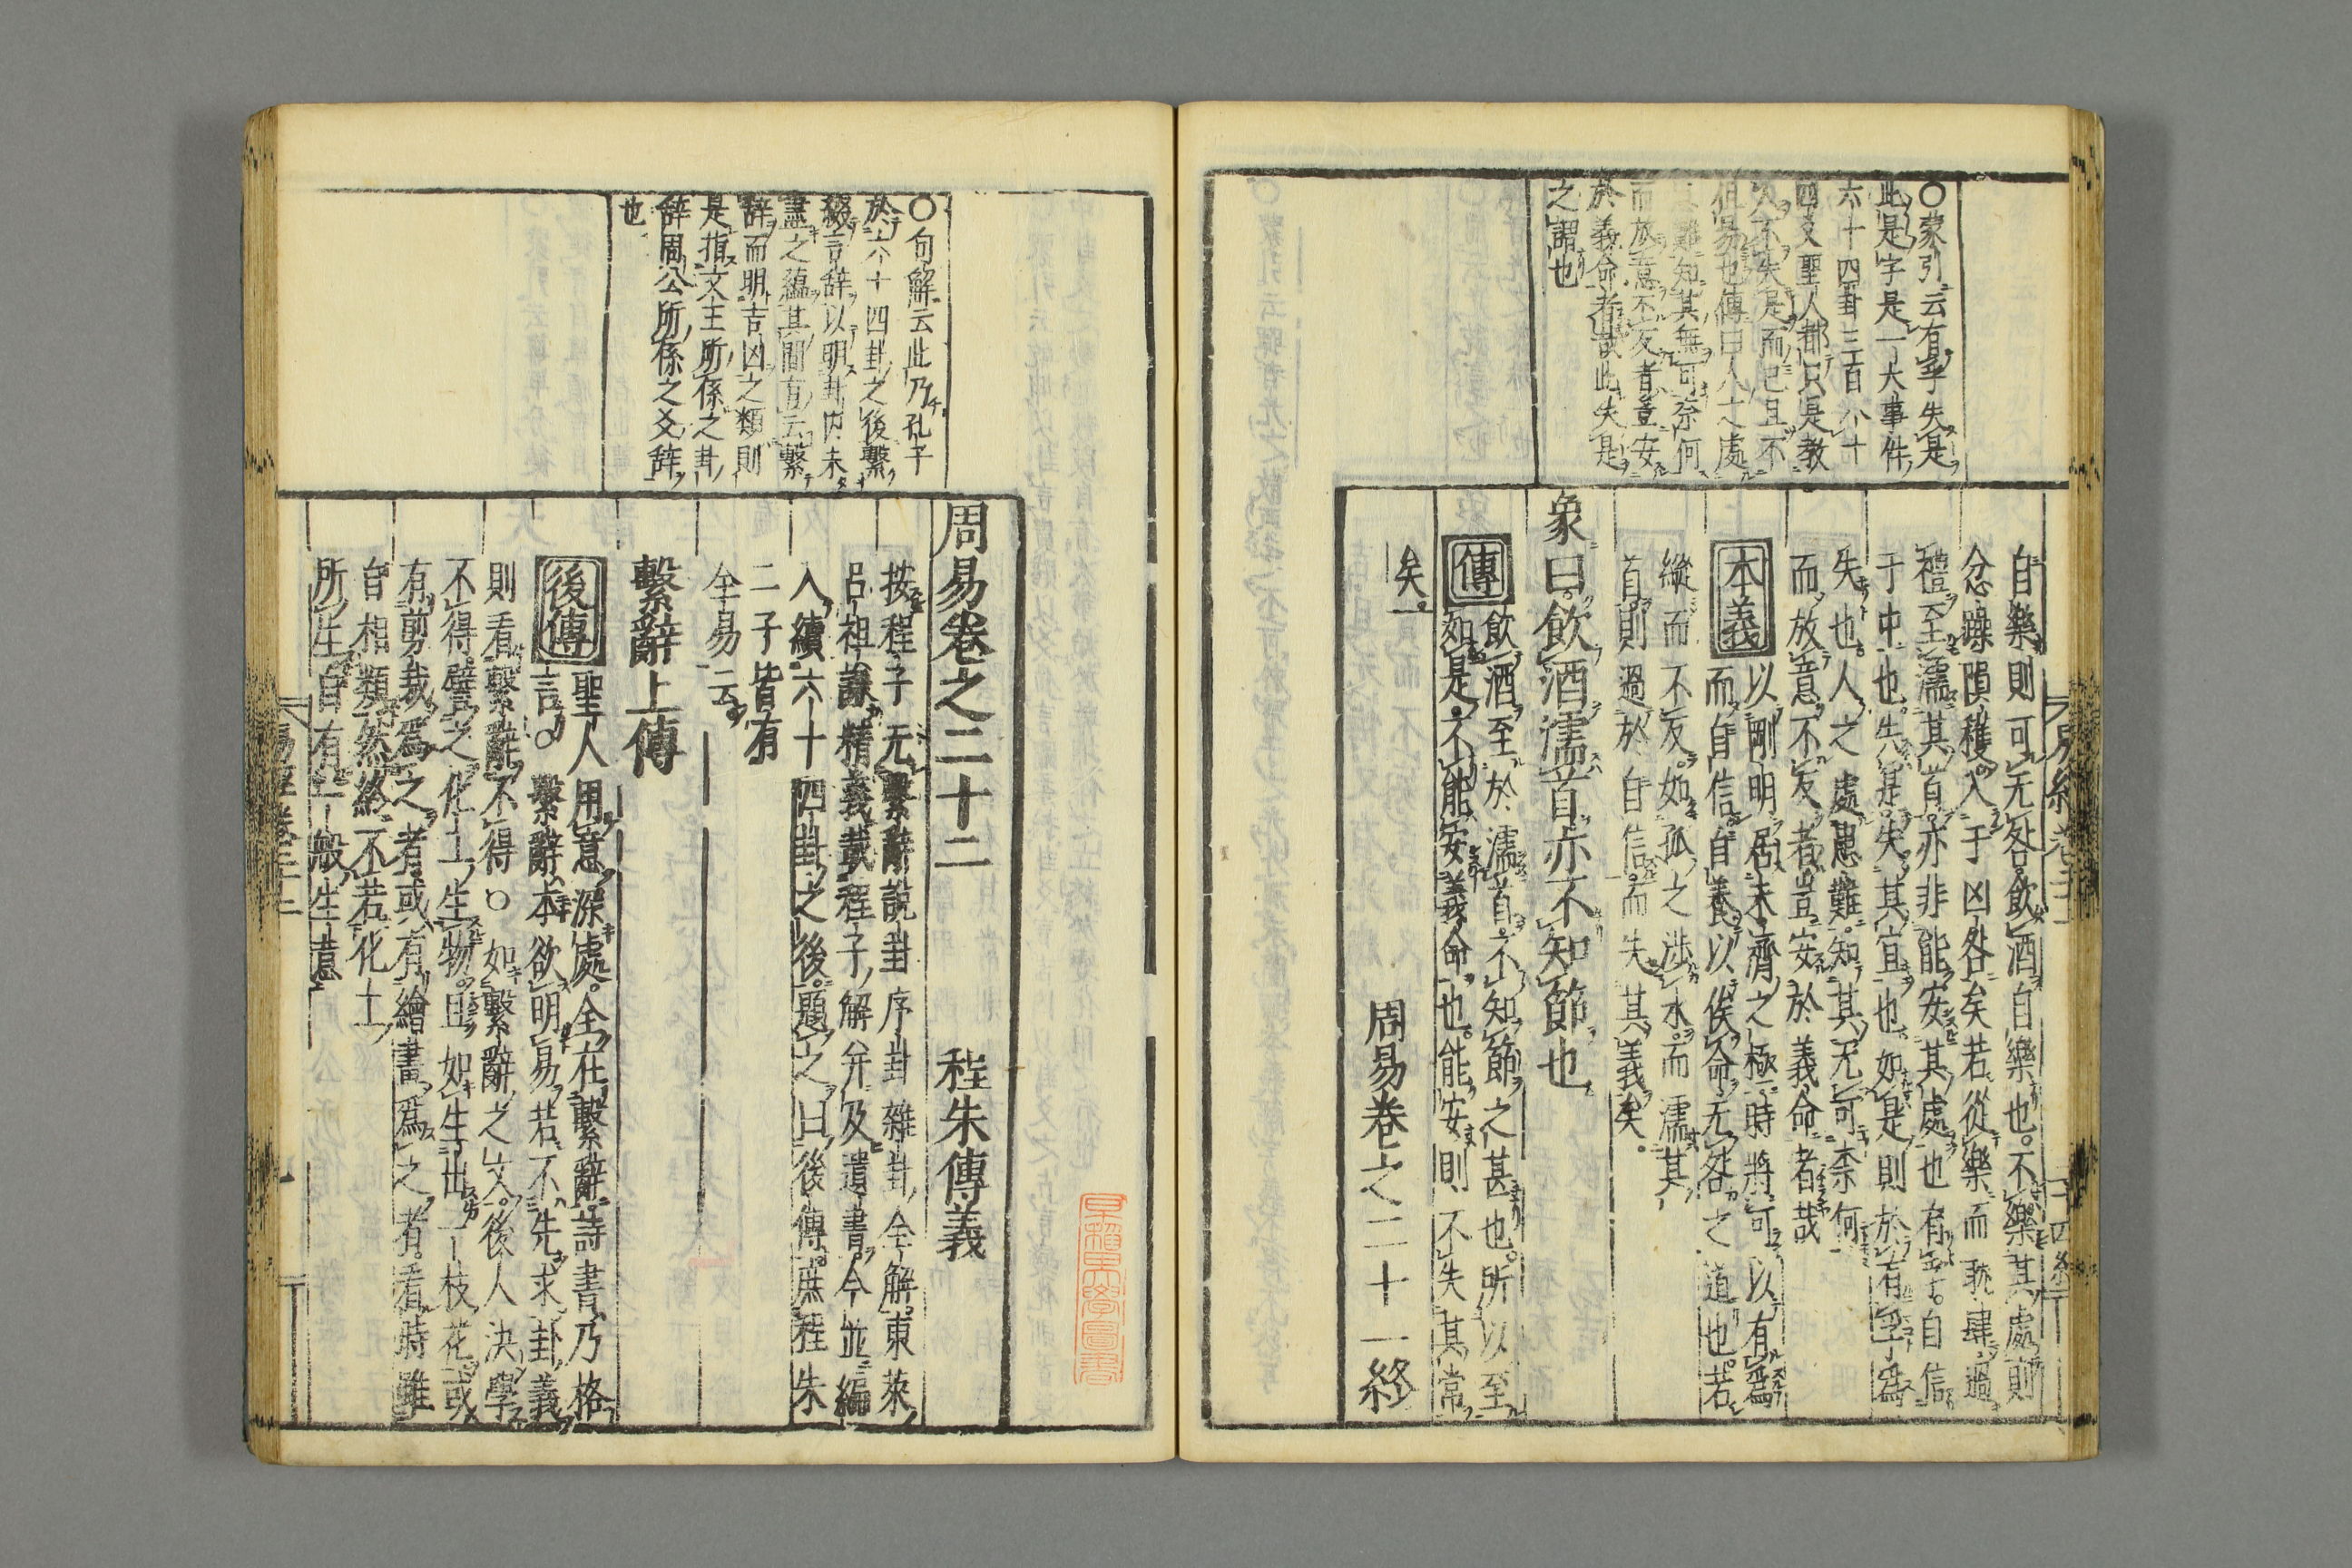 〇蒙引云有孚失是
此是字是一大事件
六十四卦三百八十
四爻聖人都只是教
人不失是而已且不
但易也傳曰人之處
患難知其無可奈何
而放意不反者豈安
於義命者哉此失是
之謂也
自樂則可无咎飲酒自樂也。不樂其處則
忿躁隕穫。入于凶咎矣若從樂而耽肆過
禮至濡其首。亦非能安其處也有孚。自信
于中也。失是。失其宜也。如是則於有孚爲
失也。人之處患難。知其无可奈何
而放意。不反者。豈安於義命者哉
本義
以剛明居未濟之極。時將可以有爲
而自信自養以俟命。无咎之道也。若
縱而不反。如狐之涉水。而濡其
首。則過於自信。而失其義矣。
象曰。飲酒濡首。亦不知節也
傳
飲酒至於濡首。不知節之甚也。所以至
如是。不能安義命也。能安則不失其常
矣。
周易卷之二十一終
〇句解云此乃孔子
於六十四卦之後繫
綴言辞以明卦内未
盡之蘊其間有云繫
辞而明吉凶之類則
是指文王所係之卦
辞周公所係之爻辞
也
周易卷之二十二
程朱傳義
按程子无繫辭說卦序卦雜卦全解。東萊
呂祖謙精義載程子解并及遺書。今並編
入續六十四卦之後。題之曰後傳。庶程朱
二子皆有
全易云
繫辭上傳
後傳
聖人用意深處。全在繫辭。詩書乃格
言。〇繫辭本欲明易。若不先求卦義
則看繫辭不得〇如繫辭之文。後人決學
不得。譬之化工生物。且如生出一枝花。或
有剪裁爲之者。或有繪畫爲之者。看時雖
自相類。然終不若化工
所生自有一般生意